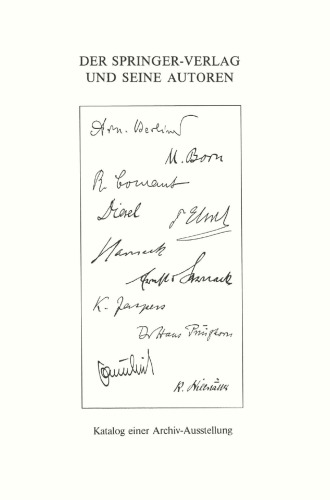 DER SPRINGER-VERLAG
UND SEINE AUTOREN
Arn. Berliner
M. Born
R Courant
Diesel
P Ehrlich
Harnack
K. Jaspers
Dr Hans
Katalog einer Archiv-Ausstellung